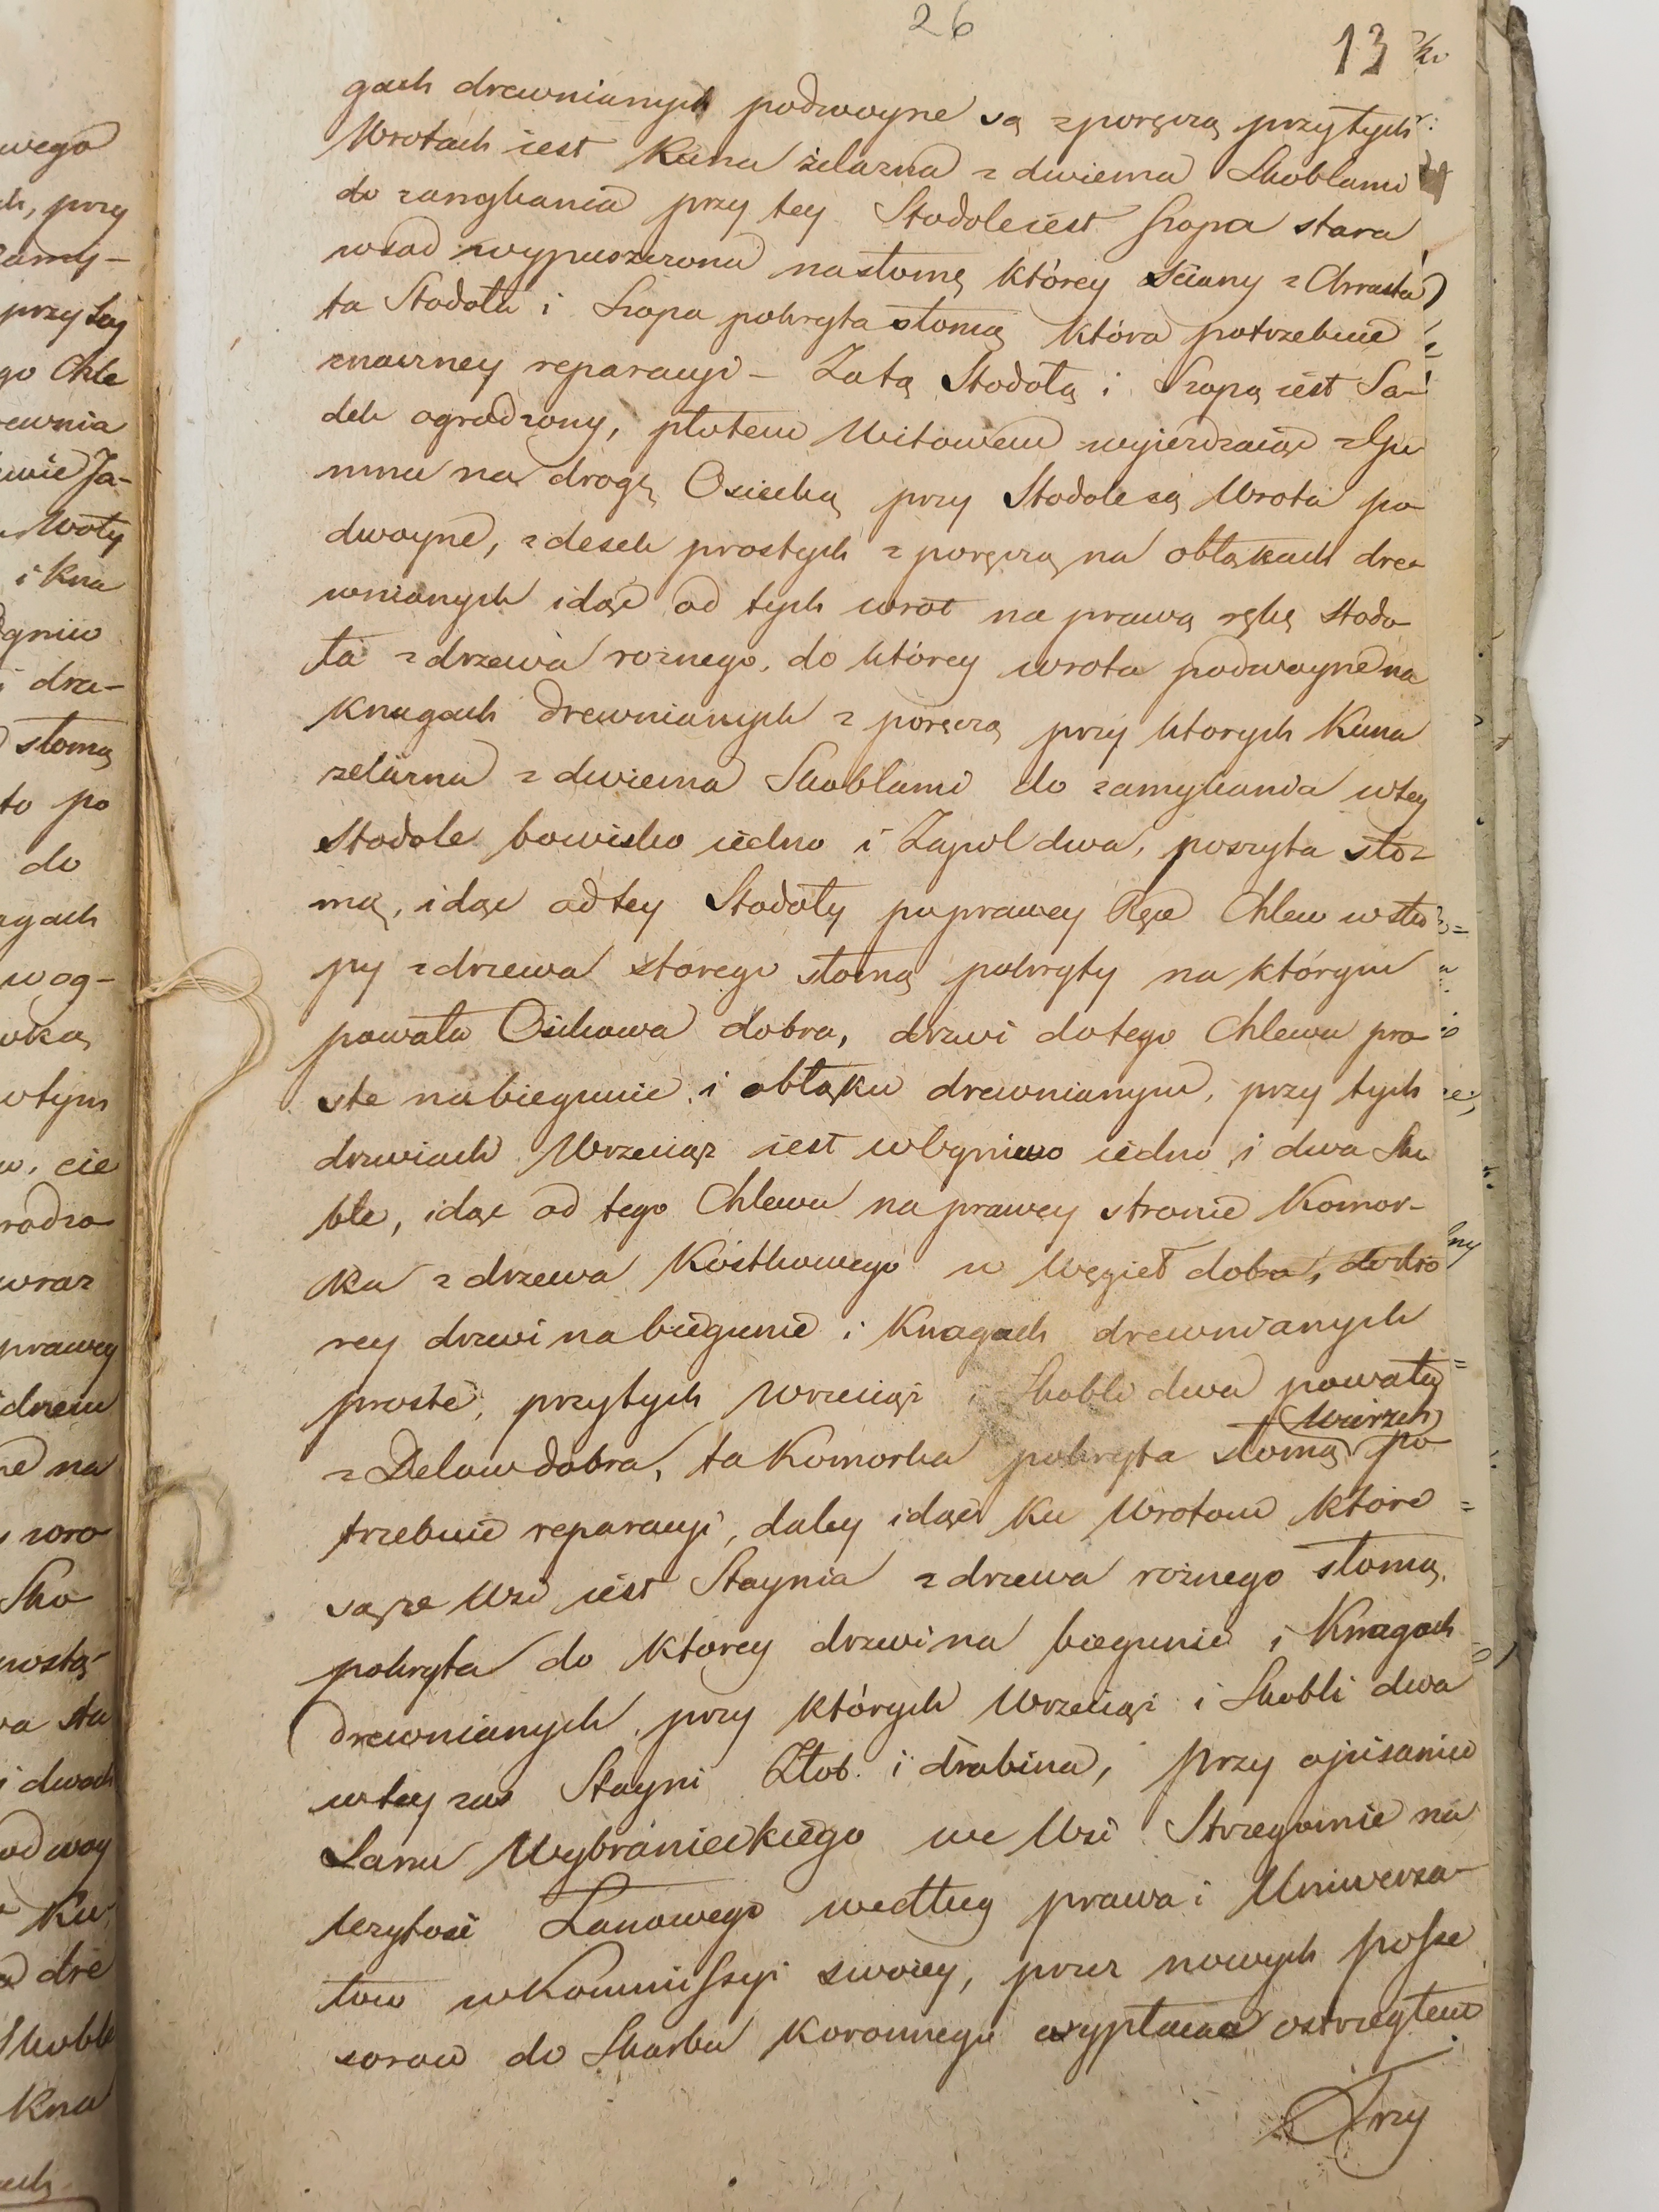 26
13
gach drewnianych podwoyne są zporęczą przytych
Wrotach iest Kuna żelazna z dwiema Skoblami
do zamykania przy tey Stodole iest Szopa stara
wsad wypuszczona nasłomę którey ściany z Chrastu
ta Stodoła i Szopa pokryta słomą która potrzebuie
znaczney reparacyi – Zatą Stodołą i Szopą iest Sa-
dek ogrodzony, płotem Witowem wyjezdzaiąc zGu
mna na drogę Osiecką przy Stodole są Wrota po
dwoyne, z desek prostych z poręczą na obłąkach dre
wnianych idąc od tych wrot na prawą rękę stodo
ła z drzewa roznego, do którey wrota podwoyne na
knagach drewnianych z poręczą przy ktorych Kuna
zelazna z dwiema Skoblami do zamykania wtey
Stodole bowisko iedno i Zapol dwa, poszyta sło-
mą, idąc odtey Stodoły poprawey Ręce Chlew wsłu
py z drzewa starego słomą pokryty na którym
powała Osikowa dobra, drzwi dotego Chlewa pro
ste nabiegunie i obłąku drewnianym, przy tych
drzwiach Wrzeciąz iest wOgniwo iedno i dwa Sko
ble, idąc od tego Chlewa na prawey stronie Komor-
ka z drzewa Kostkowego w Węgieł dobra, do kto
rey drzwi nabiegunie i Knagach drewnianych
proste, przytych wrzeciąz i Skobli dwa powała
z Delow dobra, ta Komorka pokryta słomą po
Wierzch
trzebuie reparacyi, daley idąc Ku Wrotom które
sąze Wsi iest Staynia z drzewa roznego słomą
pokryta do ktorey drzwi na biegunie i Knagach
drewnianych, przy których Wrzeciąz i Skobli dwa
wtey zas Stayni Złob i drabina, przy opisaniu
Łanu Wybranieckiego we Wsi Strzegomie na
lezytosć Łanowego według prawa i Uniwersa-
łow wKommissyi swoiey, przez nowych posse
sorow do Skarbu Koronnego wypłacac ostrzegłem
Trzy